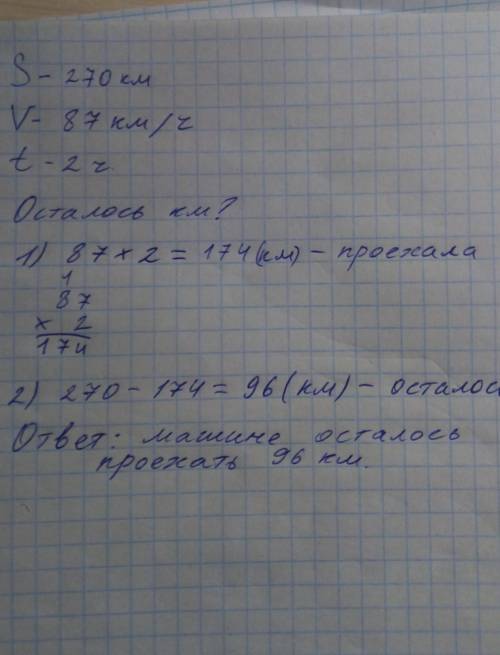 S - 270 км
V - 87 км/ч
t - 2 ч.
Осталось км?
1) 87 × 2 = 174 (км) - проехала
1
87
× 2
174
2) 270 - 174 = 96 (км) - осталос
Ответ: машине осталось
проехать 96 км.